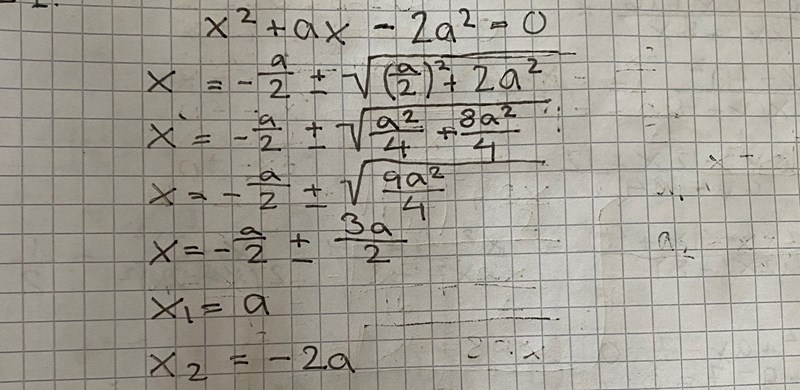 x² + ax - 2a² = 0
x = -a/2 ± √((a/2)² + 2a²)
x = -a/2 ± √(a²/4 + 8a²/4)
x = -a/2 ± √(9a²/4)
x = -a/2 ± 3a/2
x₁ = a
x₂ = -2a